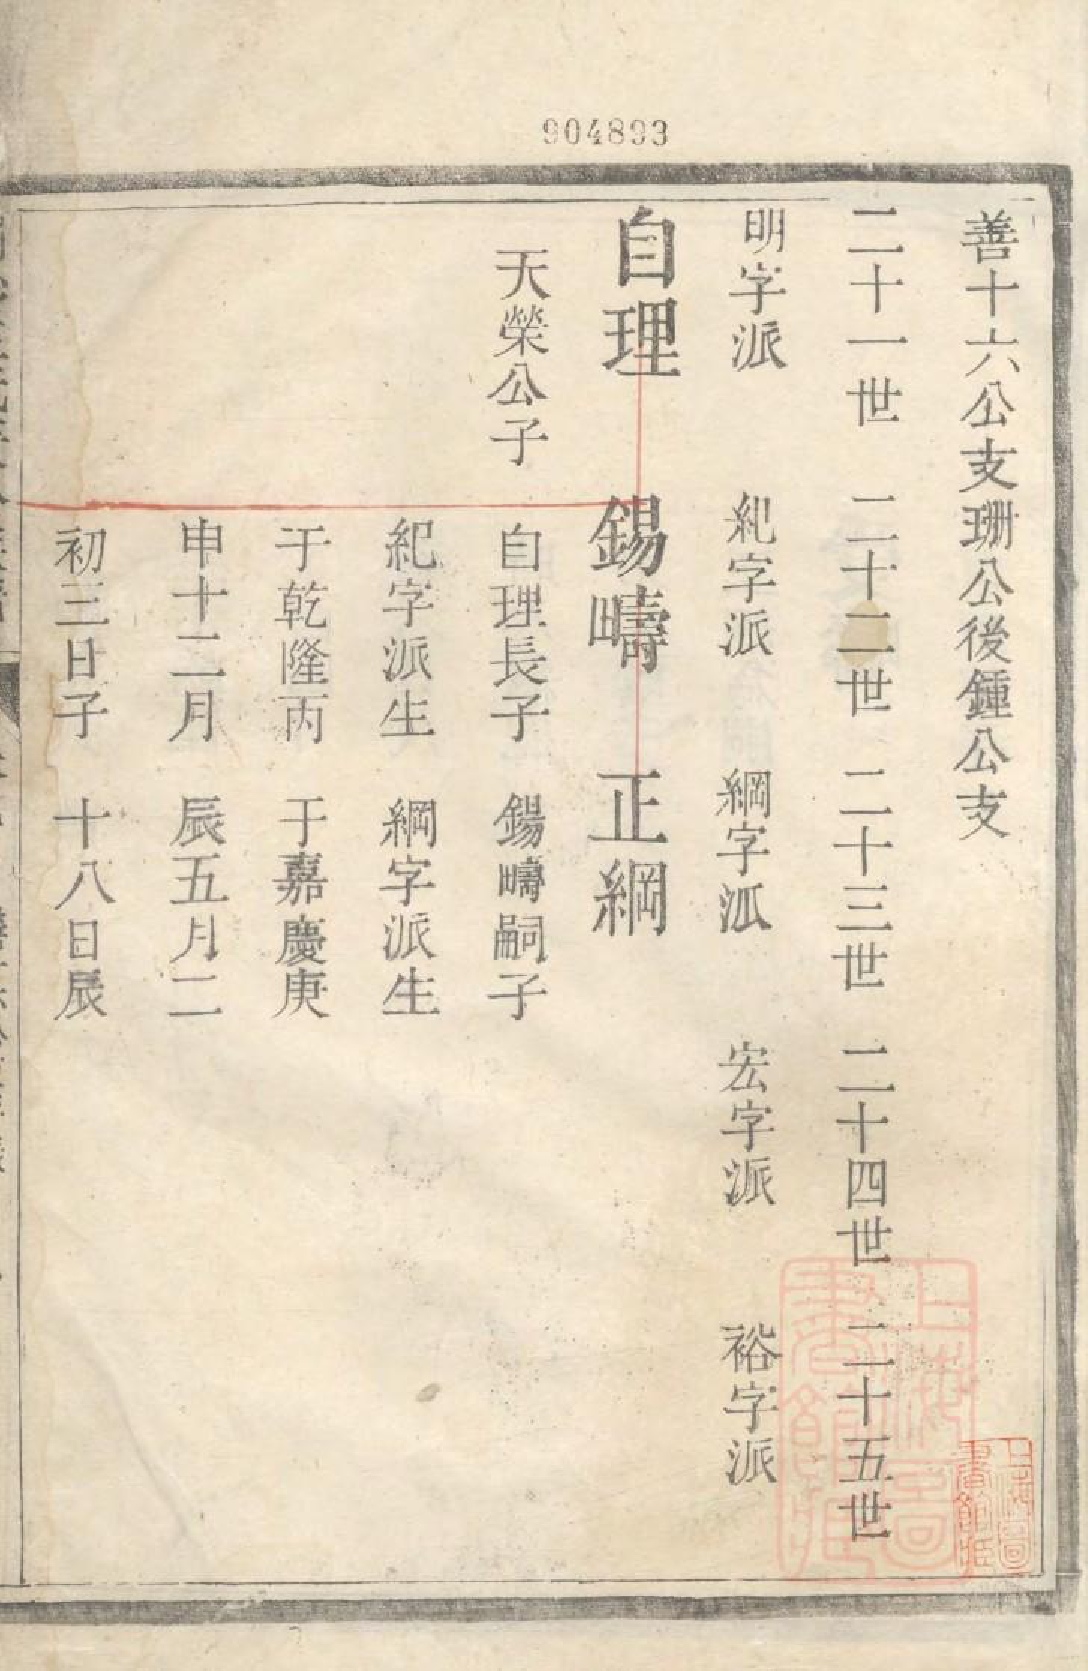 904893
善十六公支珊公後鍾公支
二十一世 二十二世 二十三世 二十四世 二十五世
明字派 紀字派 綱字派 宏字派 裕字派
自理 錫疇 正綱
天榮公子 自理長子 錫疇嗣子
紀字派生 綱字派生
于乾隆丙 于嘉慶庚
申十二月 辰五月二
初三日子 十八日辰
上海圖書館藏
上海圖書館藏